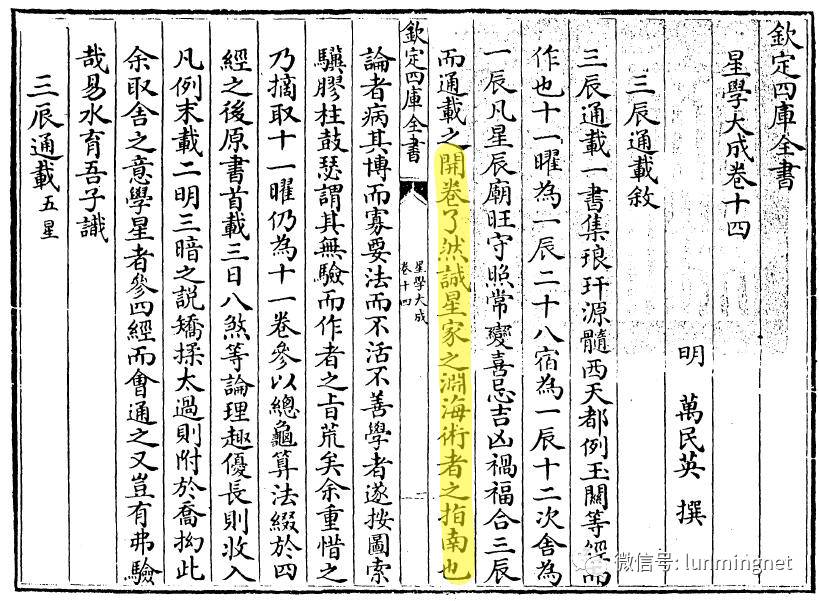 欽定四庫全書
星學大成卷十四
明 萬民英 撰
三辰通載敘
三辰通載一書集琅玕源髓西天都例玉關等經而
作也十一曜為一辰二十八宿為一辰十二次舍為
一辰凡星辰廟旺守照常變喜忌吉凶禍福合三辰
而通載之開卷了然誠星家之淵海術者之指南也
欽定四庫全書
星學大成
卷十四
論者病其博而寡要法而不活不善學者遂按圖索
驥膠柱鼓瑟謂其無驗而作者之旨荒矣余重惜之
乃摘取十一曜仍為十一卷參以總龜算法綴於四
經之後原書首載三日八煞等論理趣優長則收入
凡例末載二明三暗之說矯揉太過則附於喬拗此
余取舍之意學星者參四經而會通之又豈有弗驗
哉易水育吾子識
三辰通載五星
微信号: lunmingnet